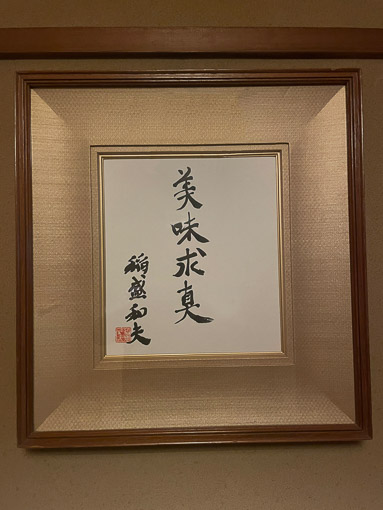 美味求真
稲盛和夫